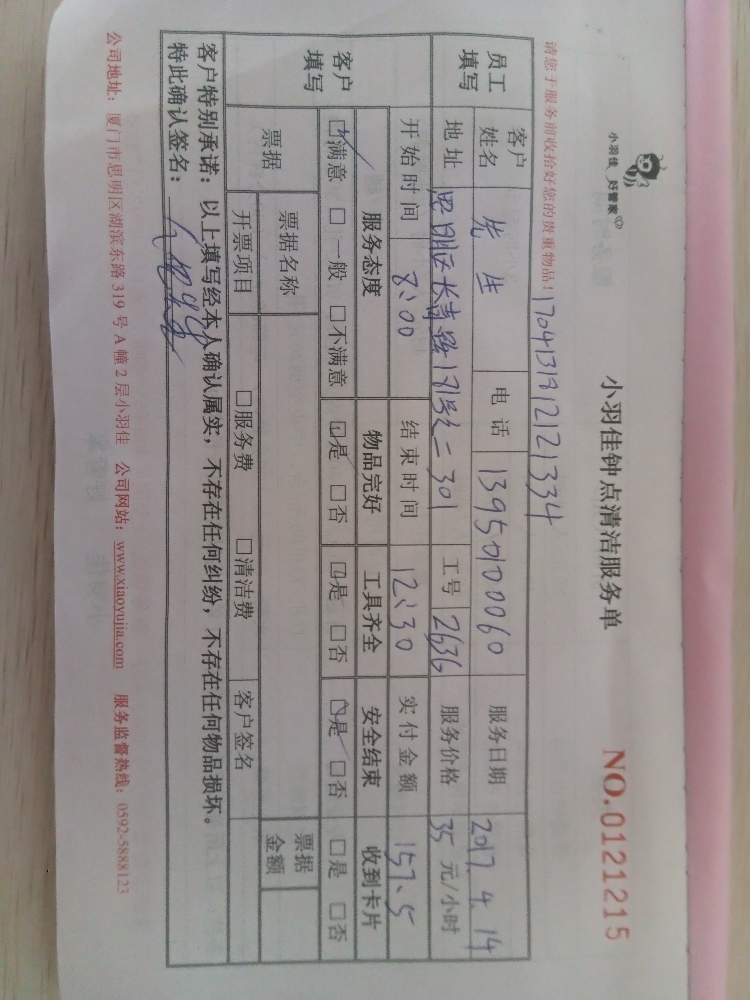 小羽佳 好管家
小羽佳钟点清洁服务单
NO.0121215
请您于服务前收拾好您的贵重物品!
员工填写 客户姓名 先生 电话 13950100060 服务日期 2017.4.14
地址 工号 2636 服务价格 35 元/小时
开始时间 8:00 结束时间 12:30 实付金额 157.5
客户填写 服务态度 物品完好 工具齐全 安全结束 收到卡片
☑满意 □一般 □不满意 ☑是 □否 ☑是 □否 ☑是 □否 □是 □否
票据 票据名称 票据金额
开票项目 □服务费 □清洁费 客户签名
客户特别承诺:以上填写经本人确认属实,不存在任何纠纷,不存在任何物品损坏。
特此确认签名:
公司地址:厦门市思明区湖滨东路 319 号 A 幢 2 层小羽佳 公司网站:www.xiaoyujia.com 服务监督热线:0592-5888123